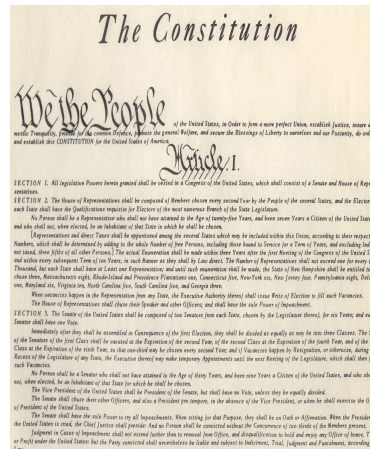 The Constitution
We the People of the United States, in Order to form a more perfect Union, establish Justice, insure
mestic Tranquility, provide for the common Defence, promote the general Welfare, and secure the Blessings of Liberty to ourselves and our Posterity, do ord
and establish this CONSTITUTION for the United States of America.
Article I.
SECTION 1. All legislative Powers herein granted shall be vested in a Congress of the United States, which shall consist of a Senate and House of Rep
sentatives.
SECTION 2. The House of Representatives shall be composed of Members chosen every second Year by the People of the several States, and the Elector
each State shall have the Qualifications requisite for Electors of the most numerous Branch of the State Legislature.
No Person shall be a Representative who shall not have attained to the Age of twenty-five Years, and been seven Years a Citizen of the United States
and who shall not, when elected, be an Inhabitant of that State in which he shall be chosen.
[Representatives and direct Taxes shall be apportioned among the several States which may be included within this Union, according to their respect
Numbers, which shall be determined by adding to the whole Number of free Persons, including those bound to Service for a Term of Years, and excluding Ind
not taxed, three fifths of all other Persons.] The actual Enumeration shall be made within three Years after the first Meeting of the Congress of the United S
and within every subsequent Term of ten Years, in such Manner as they shall by Law direct. The Number of Representatives shall not exceed one for every t
Thousand, but each State shall have at Least one Representative; and until such enumeration shall be made, the State of New Hampshire shall be entitled to
chuse three, Massachusetts eight, Rhode-Island and Providence Plantations one, Connecticut five, New-York six, New Jersey four, Pennsylvania eight, Dela
one, Maryland six, Virginia ten, North Carolina five, South Carolina five, and Georgia three.
When vacancies happen in the Representation from any State, the Executive Authority thereof shall issue Writs of Election to fill such Vacancies.
The House of Representatives shall chuse their Speaker and other Officers; and shall have the sole Power of Impeachment.
SECTION 3. The Senate of the United States shall be composed of two Senators from each State, chosen by the Legislature thereof, for six Years; and ea
Senator shall have one Vote.
Immediately after they shall be assembled in Consequence of the first Election, they shall be divided as equally as may be into three Classes. The S
of the Senators of the first Class shall be vacated at the Expiration of the second Year, of the second Class at the Expiration of the fourth Year, and of the
Class at the Expiration of the sixth Year, so that one-third may be chosen every second Year; and if Vacancies happen by Resignation, or otherwise, during
Recess of the Legislature of any State, the Executive thereof may make temporary Appointments until the next Meeting of the Legislature, which shall then
such Vacancies.
No Person shall be a Senator who shall not have attained to the Age of thirty Years, and been nine Years a Citizen of the United States, and who sha
not, when elected, be an Inhabitant of that State for which he shall be chosen.
The Vice President of the United States shall be President of the Senate, but shall have no Vote, unless they be equally divided.
The Senate shall chuse their other Officers, and also a President pro tempore, in the absence of the Vice President, or when he shall exercise the O
of President of the United States.
The Senate shall have the sole Power to try all Impeachments. When sitting for that Purpose, they shall be on Oath or Affirmation. When the Presiden
the United States is tried, the Chief Justice shall preside: And no Person shall be convicted without the Concurrence of two thirds of the Members present.
Judgment in Cases of Impeachment shall not extend further than to removal from Office, and disqualification to hold and enjoy any Office of honor, T
or Profit under the United States: but the Party convicted shall nevertheless be liable and subject to Indictment, Trial, Judgment and Punishment, according